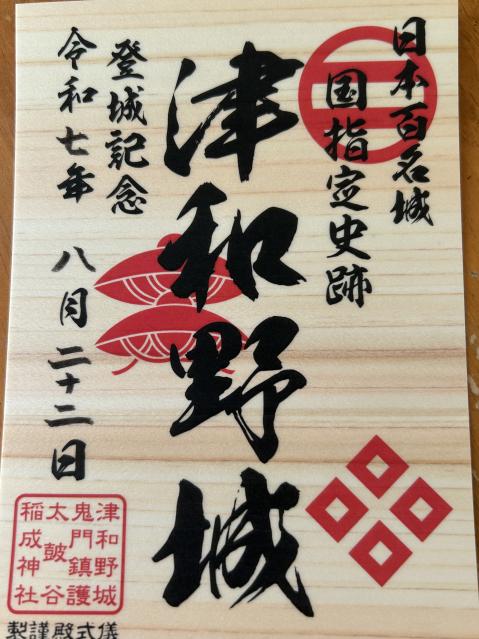 日本百名城
国指定史跡
津和野城
登城記念
令和七年 八月二十二日
津和野城
鬼門鎮護
太皷谷
稲成神社
儀式殿謹製